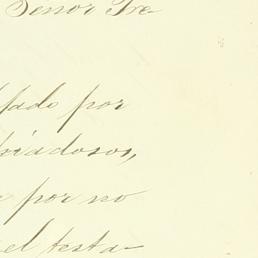 Señor Pre-
fado por
hiadosos,
por no
el testa-